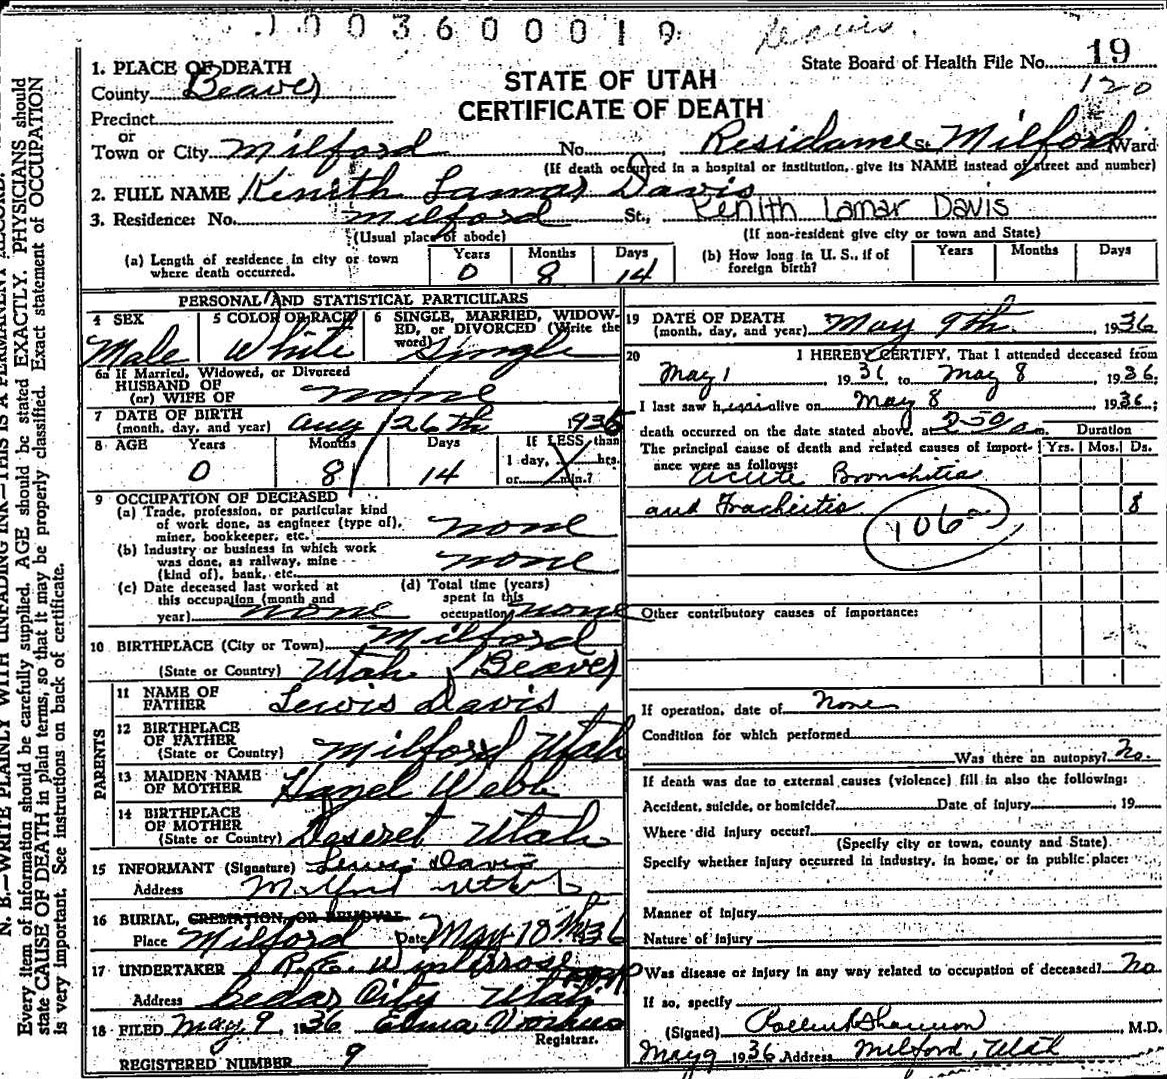 1003600019
Davis
State Board of Health File No. 19
120
1. PLACE OF DEATH
County Beaver
STATE OF UTAH
CERTIFICATE OF DEATH
Precinct
or
Town or City Milford No. Residance St. Milford Ward
(If death occurred in a hospital or institution, give its NAME instead of street and number)
2. FULL NAME Kenith Lamar Davis
3. Residence: No. Milford St., Kenith Lamar Davis
(Usual place of abode) (If non-resident give city or town and State)
(a) Length of residence in city or town where death occurred. Years 0 Months 8 Days 14
(b) How long in U. S., if of foreign birth? Years Months Days
PERSONAL AND STATISTICAL PARTICULARS
4 SEX Male
5 COLOR OR RACE White
6 SINGLE, MARRIED, WIDOWED, or DIVORCED (Write the word) Single
6a If Married, Widowed, or Divorced
HUSBAND OF
(or) WIFE OF none
7 DATE OF BIRTH
(month, day, and year) Aug 26th 1935
8 AGE Years 0 Months 8 Days 14 If LESS than 1 day, hrs. or min.?
9 OCCUPATION OF DECEASED
(a) Trade, profession, or particular kind of work done, as engineer (type of), miner, bookkeeper, etc. none
(b) Industry or business in which work was done, as railway, mine (kind of), bank, etc. none
(c) Date deceased last worked at this occupation (month and year) none
(d) Total time (years) spent in this occupation none
10 BIRTHPLACE (City or Town) Milford
(State or Country) Utah Beaver
PARENTS
11 NAME OF FATHER Lewis Davis
12 BIRTHPLACE OF FATHER
(State or Country) Milford Utah
13 MAIDEN NAME OF MOTHER Hazel Webb
14 BIRTHPLACE OF MOTHER
(State or Country) Deseret Utah
15 INFORMANT (Signature) Lewis Davis
Address Milford Utah
16 BURIAL, CREMATION, OR REMOVAL
Place Milford Date May 10th 1936
17 UNDERTAKER R. E.
Address Cedar City Utah
18 FILED May 9, 1936 Elma Voorhees
Registrar.
REGISTERED NUMBER 9
19 DATE OF DEATH
(month, day, and year) May 9th 1936
20 I HEREBY CERTIFY, That I attended deceased from
May 1, 1936 to May 8, 1936;
I last saw him alive on May 8, 1936;
death occurred on the date stated above, at 2-50 a m. Duration
The principal cause of death and related causes of importance were as follows: Yrs. Mos. Ds.
Acute Bronchitis
and Tracheitis 8
106
Other contributory causes of importance:
If operation, date of None
Condition for which performed
Was there an autopsy? No
If death was due to external causes (violence) fill in also the following:
Accident, suicide, or homicide? Date of injury , 19
Where did injury occur?
(Specify city or town, county and State)
Specify whether injury occurred in industry, in home, or in public place:
Manner of Injury
Nature of Injury
Was disease or injury in any way related to occupation of deceased? No
If so, specify
(Signed) M.D.
May 9 1936 Address Milford, Utah
N. B.—WRITE PLAINLY WITH UNFADING INK—THIS IS A PERMANENT RECORD.
Every item of information should be carefully supplied. AGE should be stated EXACTLY. PHYSICIANS should
state CAUSE OF DEATH in plain terms, so that it may be properly classified. Exact statement of OCCUPATION
is very important. See instructions on back of certificate.